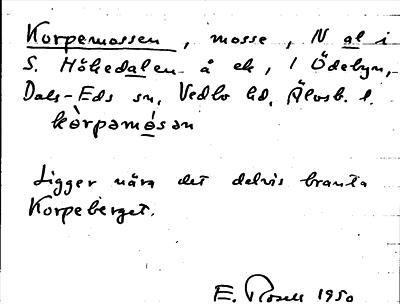 Korpemossen, mosse, N al i
S. Hökedalen å ek, 1 Ödebyn,
Dals-Eds sn, Vedbo hd, Älvsb. l.
kòrpəmósən
Ligger nära det delvis branta
Korpeberget.
E. 1950